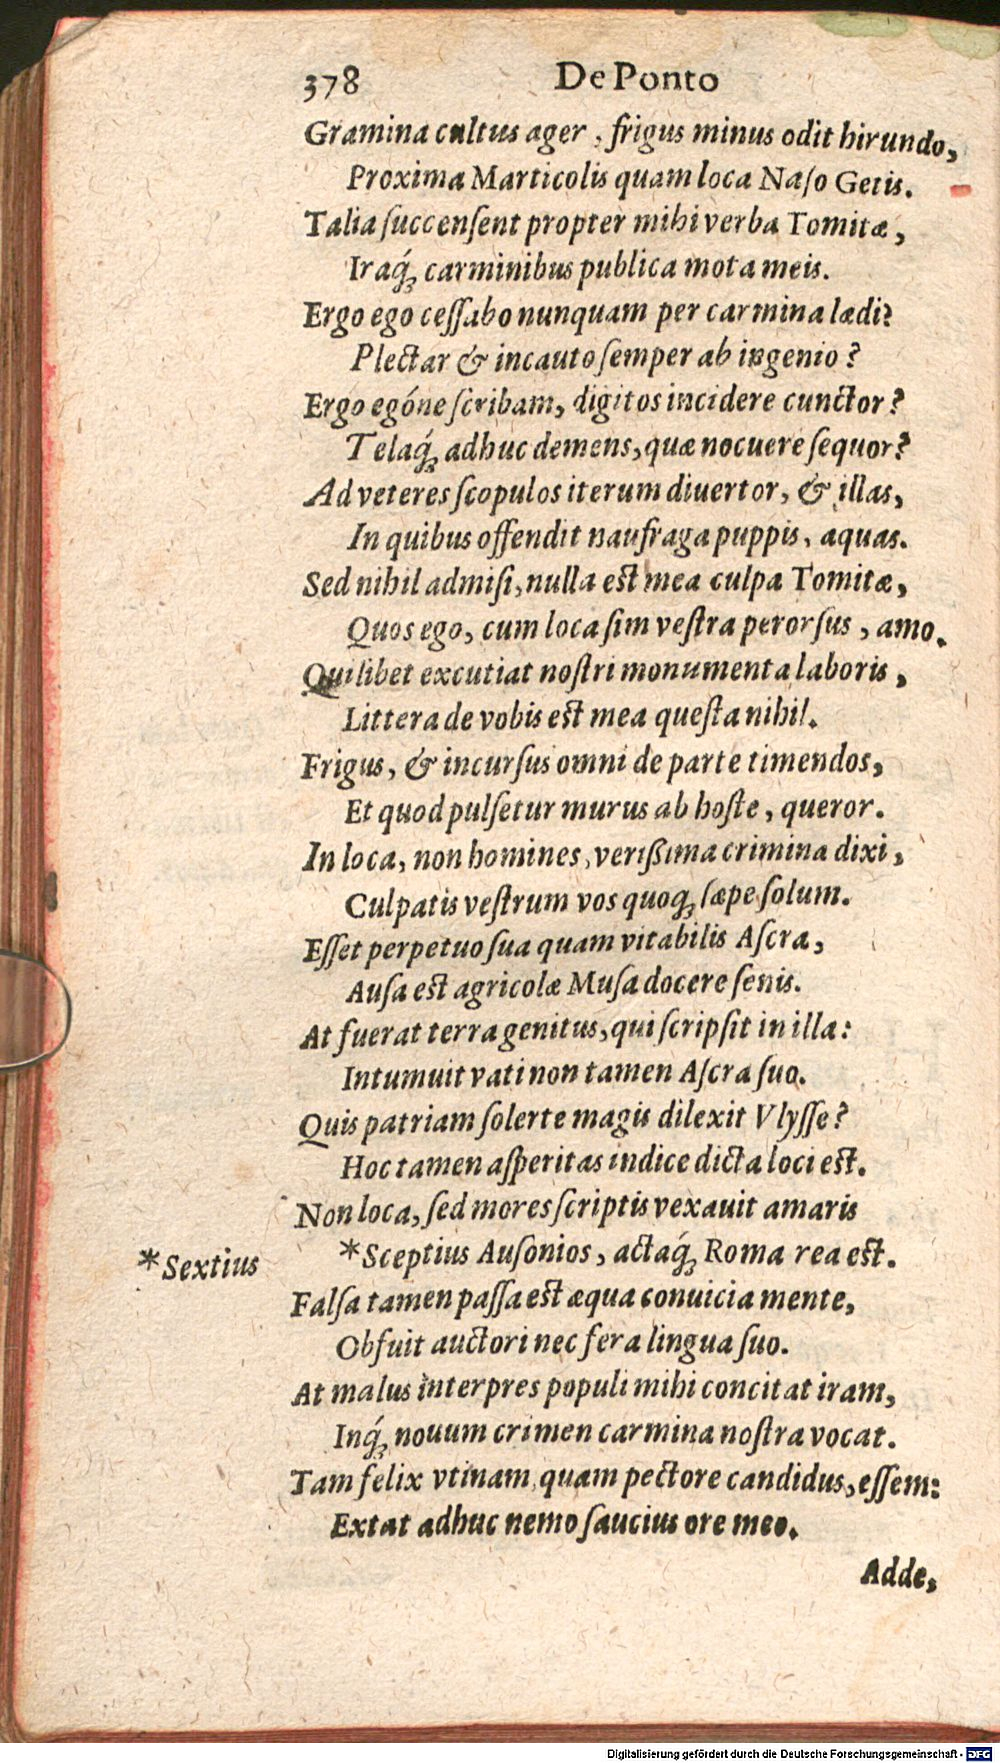 378 De Ponto
Gramina cultus ager, frigus minus odit hirundo,
Proxima Marticolis quam loca Naſo Getis.
Talia ſuccenſent propter mihi verba Tomitæ,
Iraq́; carminibus publica mota meis.
Ergo ego ceſſabo nunquam per carmina lædi?
Plectar & incauto ſemper ab ingenio?
Ergo egóne ſcribam, digitos incidere cunctor?
Telaq́; adhuc demens, quæ nocuere ſequor?
Ad veteres ſcopulos iterum diuertor, & illas,
In quibus offendit naufraga puppis, aquas.
Sed nihil admiſi, nulla eſt mea culpa Tomitæ,
Quos ego, cum loca ſim veſtra perorſus, amo.
Quilibet excutiat noſtri monumenta laboris,
Littera de vobis eſt mea queſta nihil.
Frigus, & incurſus omni de parte timendos,
Et quod pulſetur murus ab hoſte, queror.
In loca, non homines, veriſsima crimina dixi,
Culpatis veſtrum vos quoq; ſæpe ſolum.
Eſſet perpetuo ſua quam vitabilis Aſcra,
Auſa eſt agricolæ Muſa docere ſenis.
At fuerat terra genitus, qui ſcripſit in illa:
Intumuit vati non tamen Aſcra ſuo.
Quis patriam ſolerte magis dilexit Vlyſſe?
Hoc tamen aſperitas indice dicta loci eſt.
Non loca, ſed mores ſcriptis vexauit amaris
*Sextius *Sceptius Auſonios, actaq́; Roma rea eſt.
Falſa tamen paſſa eſt æqua conuicia mente,
Obfuit auctori nec fera lingua ſuo.
At malus interpres populi mihi concitat iram,
Inq́; nouum crimen carmina noſtra vocat.
Tam felix vtinam, quam pectore candidus, eſſem:
Extat adhuc nemo ſaucius ore meo.
Adde,
Digitalisierung gefördert durch die Deutsche Forschungsgemeinschaft - DFG